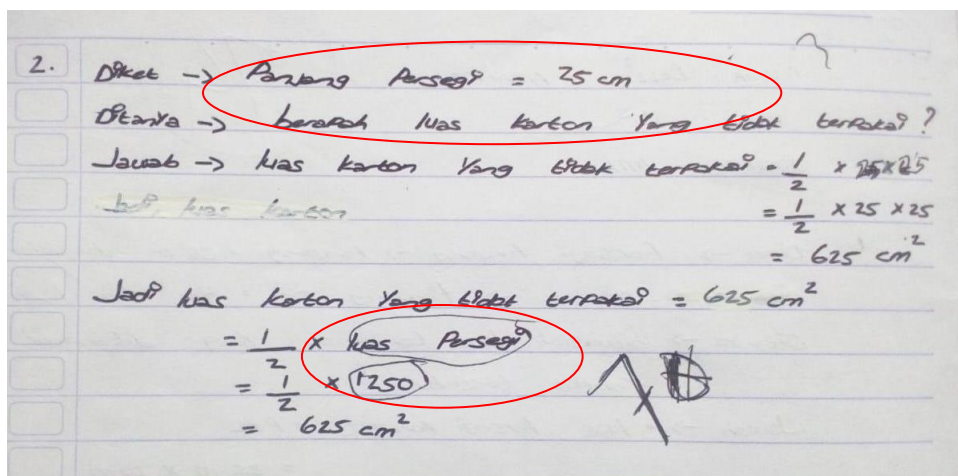 2. Diket -> Panjang Persegi = 25 cm
Ditanya -> berapah luas karton Yang tidak terpakai?
Jawab -> luas karton Yang tidak terpakai = 1/2 × 25 × 25
Jadi, luas karton
= 1/2 × 25 × 25
= 625 cm²
Jadi luas karton Yang tidak terpakai = 625 cm²
= 1/2 × luas Persegi
= 1/2 × 1250
= 625 cm²